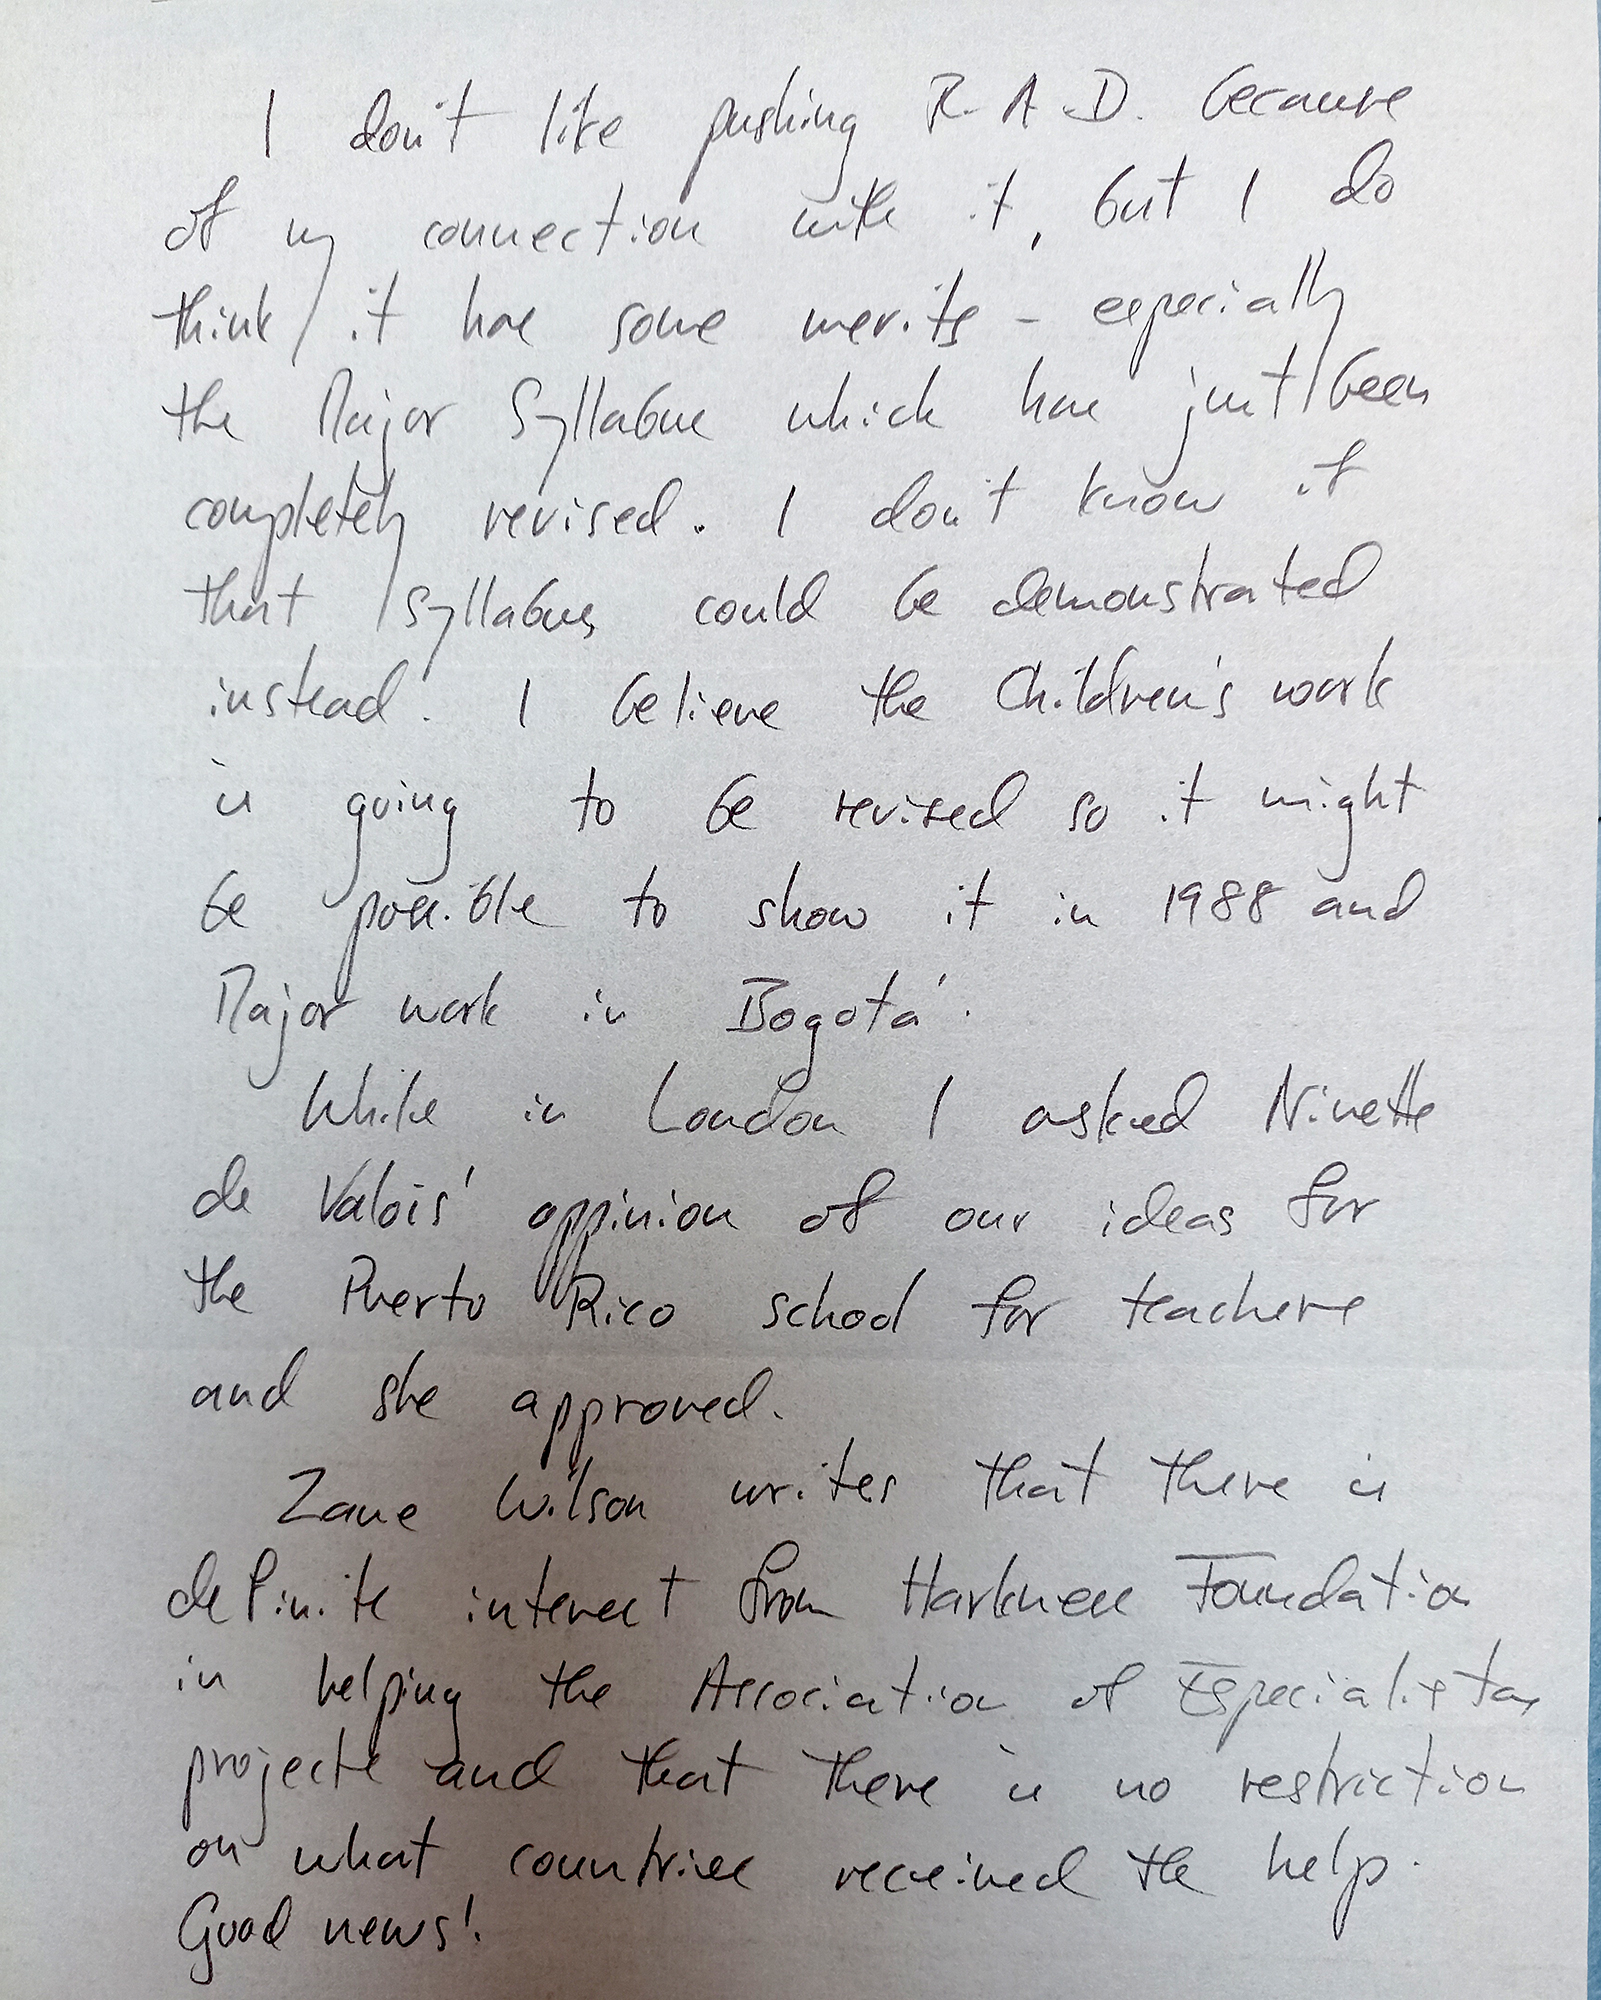 I don't like pushing R.A.D. because
of my connection with it, but I do
think it has some merits - especially
the Major Syllabus which has just been
completely revised. I don't know if
that syllabus could be demonstrated
instead. I believe the Children's work
is going to be revised so it might
be possible to show it in 1988 and
Major work in Bogotá.
While in London I asked Ninette
de Valois' oppinion of our ideas for
the Puerto Rico school for teachers
and she approved.
Zane Wilson writes that there is
definite interest from Harkness Foundation
in helping the Association of Especialistas
projects and that there is no restriction
on what countries received the help.
Good news!